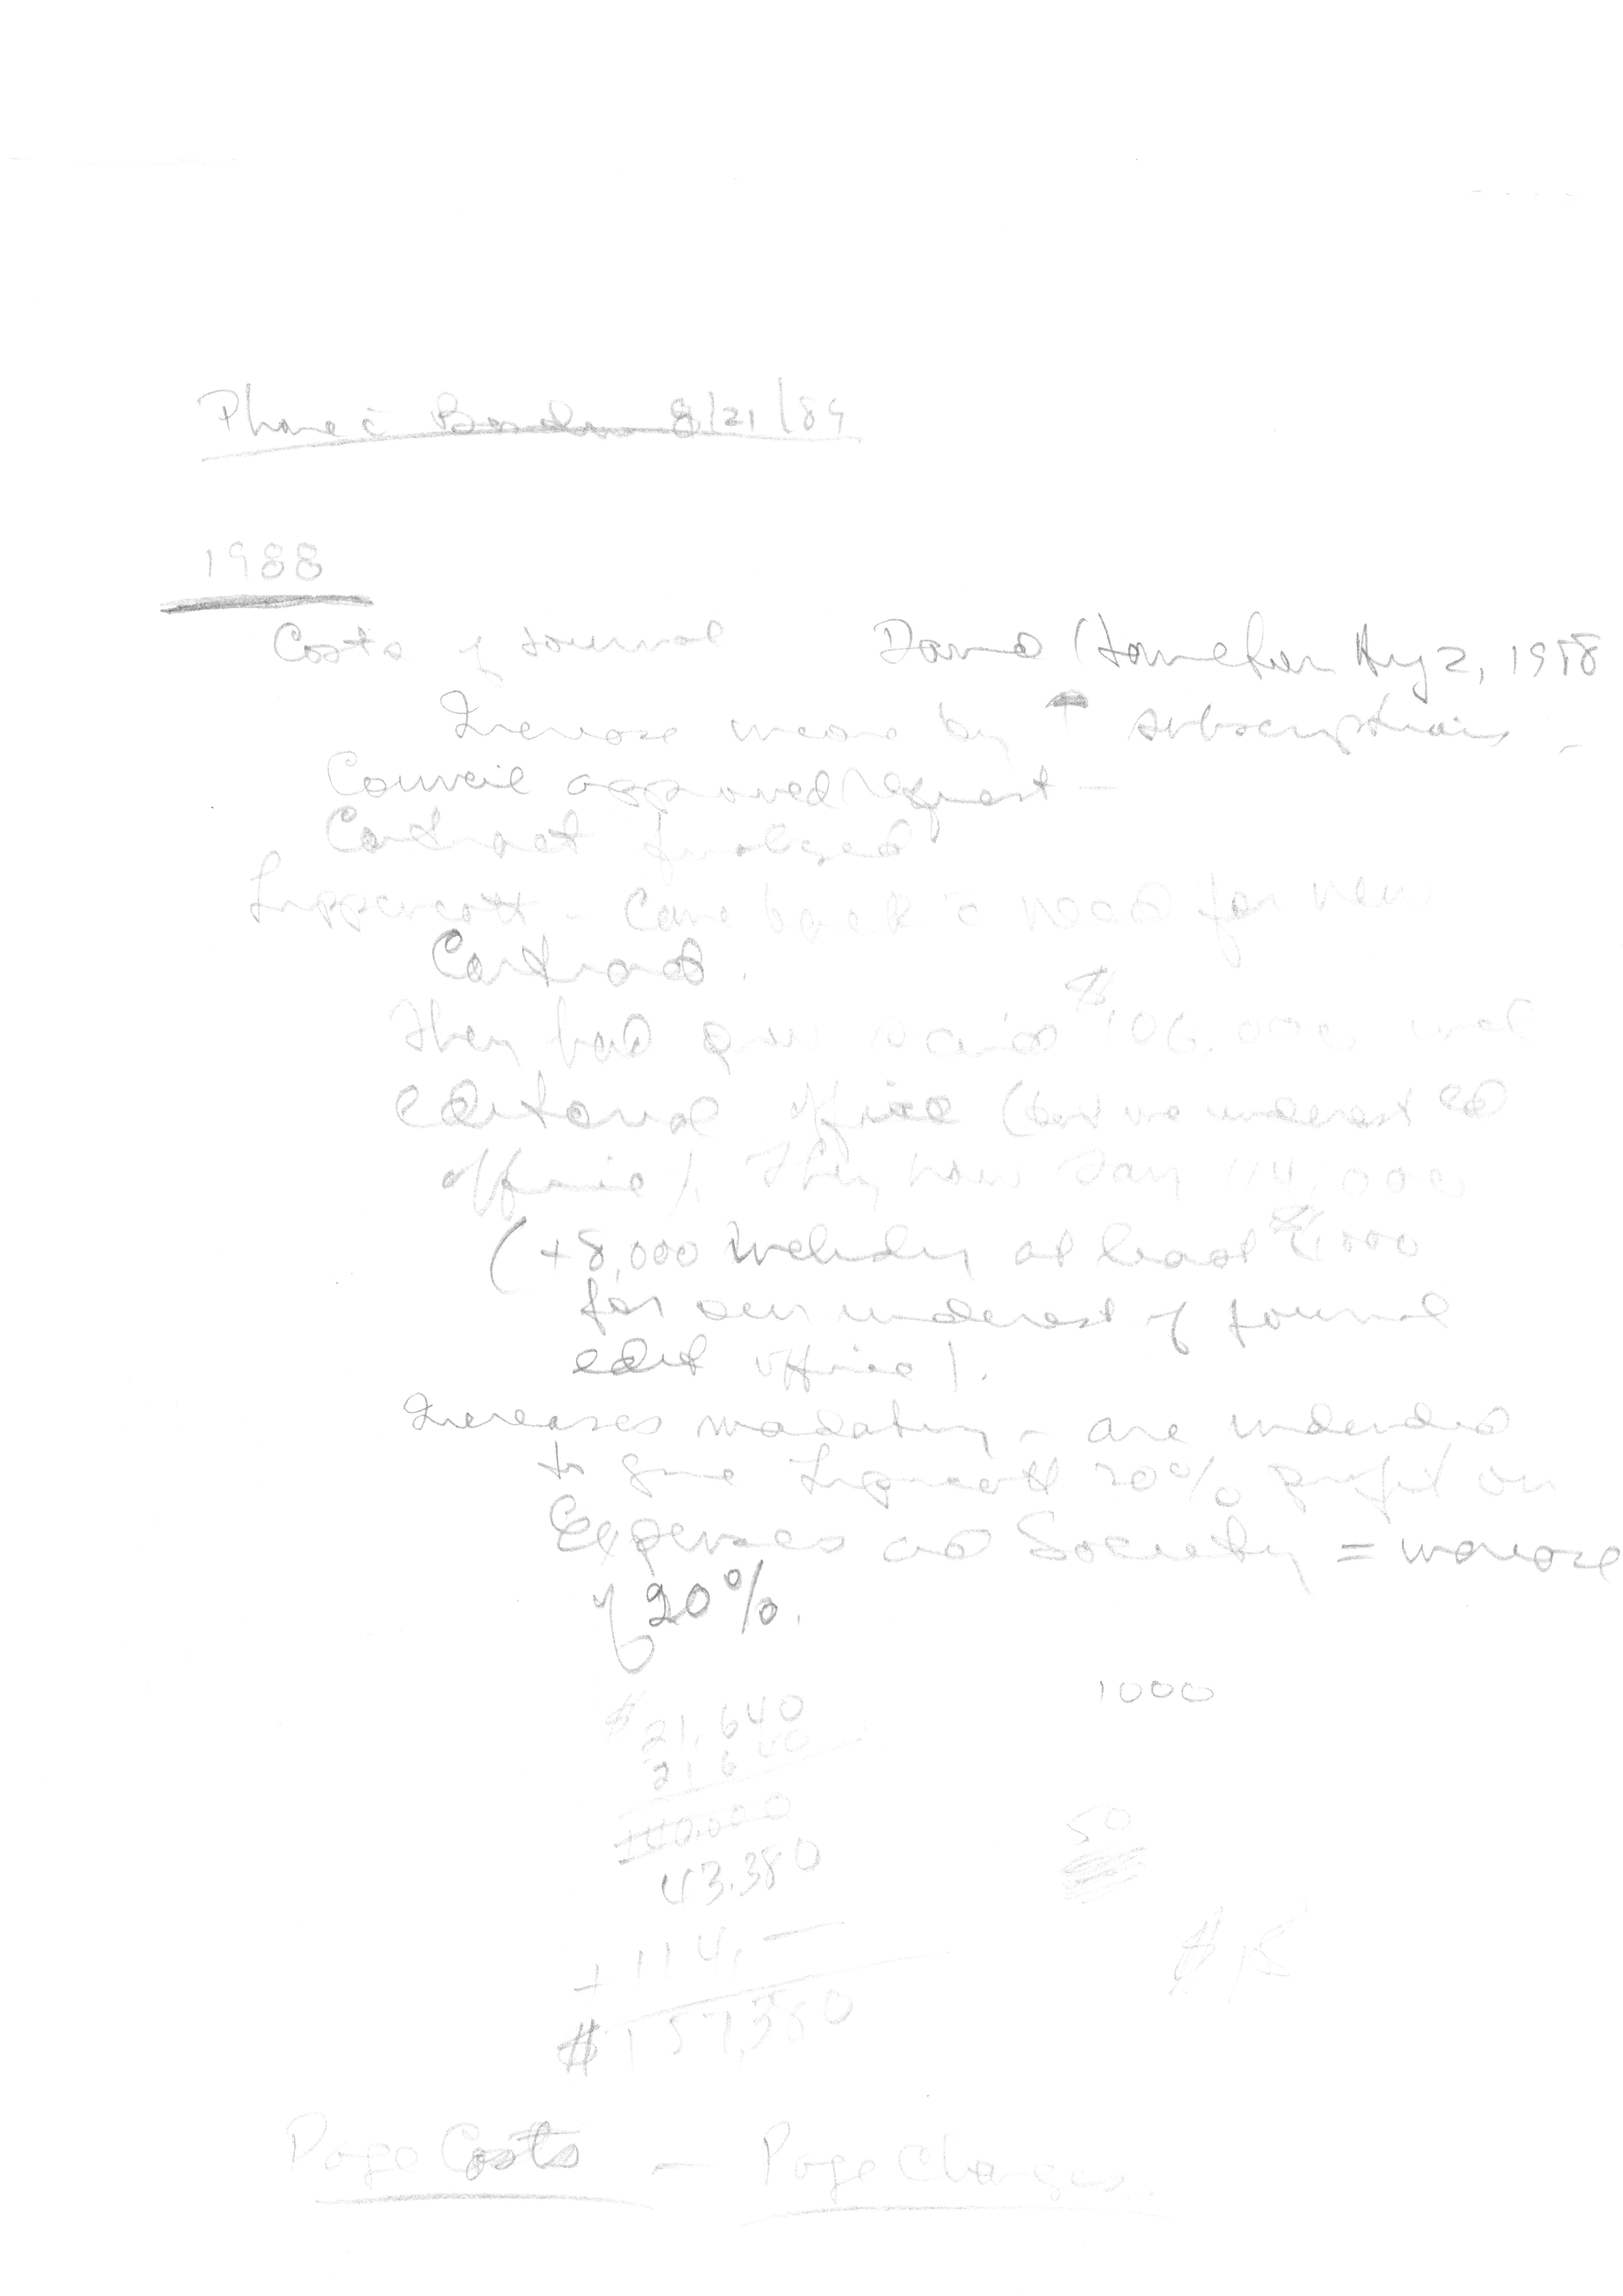 Phone c̄ 8/21/89
1988
Costs of Journal Aug 2, 1988
Increase means by ↑ subscriptions -
Council approved request -
Contract finalized
Lippincott - Came back c̄ need for new
Contract.
They had $106,000
Editorial office (but we underest ed
office). They now say 114,000
(+8,000 including at least $1000
for our underest of journal
edit office).
Increases madatory - are intended
to give Lippincott 20% profit on
Expenses and Society = increase
of 20%.
$21,640
21 640
140,000
43.380
+ 114,—
$157,380
1000
50
$18
Page Costs - Page Charges